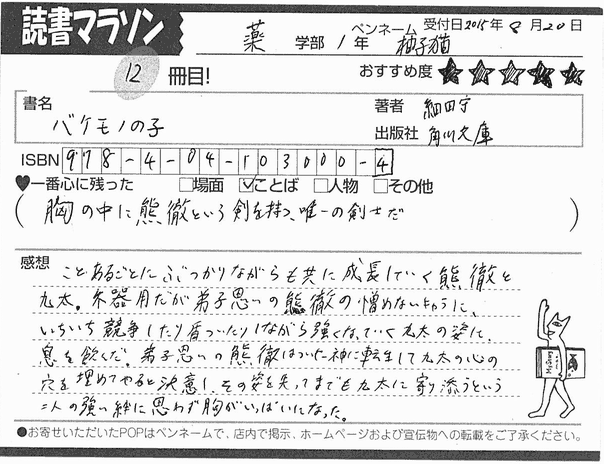 読書マラソン
薬 学部 1年 ペンネーム 柚子猫 受付日2015年8月20日
12 冊目!
おすすめ度 ★★★★★
書名 バケモノの子
著者 細田守
出版社 角川文庫
ISBN 978-4-04-103000-4
♥一番心に残った □場面 ☑ことば □人物 □その他
(胸の中に熊徹という剣を持つ、唯一の剣士だ)
感想
ことあるごとにぶつかりながらも共に成長していく熊徹と
九太。不器用だが弟子思いの熊徹の憎めないキャラに、
いちいち競争したり傷ついたりしながら強くなっていく九太の姿に
息を飲んだ。弟子思いの熊徹はついに神に転生して九太の心の
穴を埋めてやると決意し、その姿を失ってまでも九太に寄り添うという
二人の強い絆に思わず胸がいっぱいになった。
●お寄せいただいたPOPはペンネームで、店内で掲示、ホームページおよび宣伝物への転載をご了承ください。